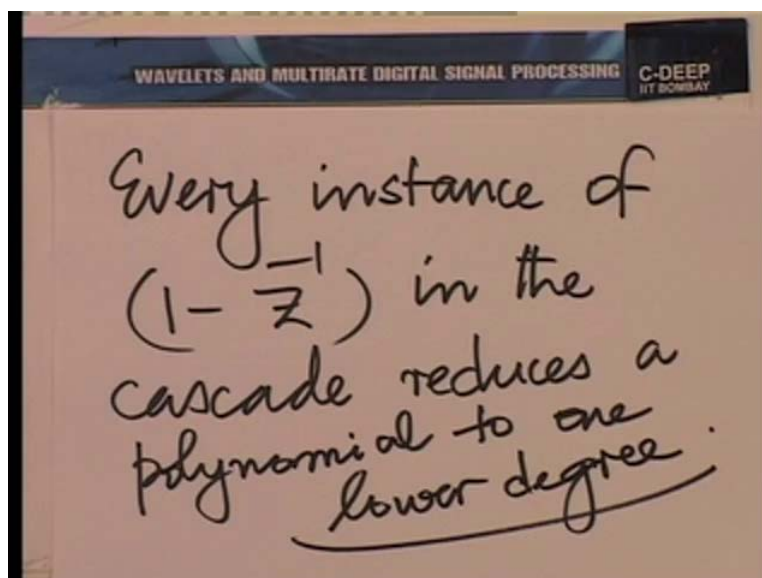 WAVELETS AND MULTIRATE DIGITAL SIGNAL PROCESSING
C-DEEP
IIT BOMBAY
Every instance of
(1 - z⁻¹) in the
cascade reduces a
polynomial to one
lower degree.